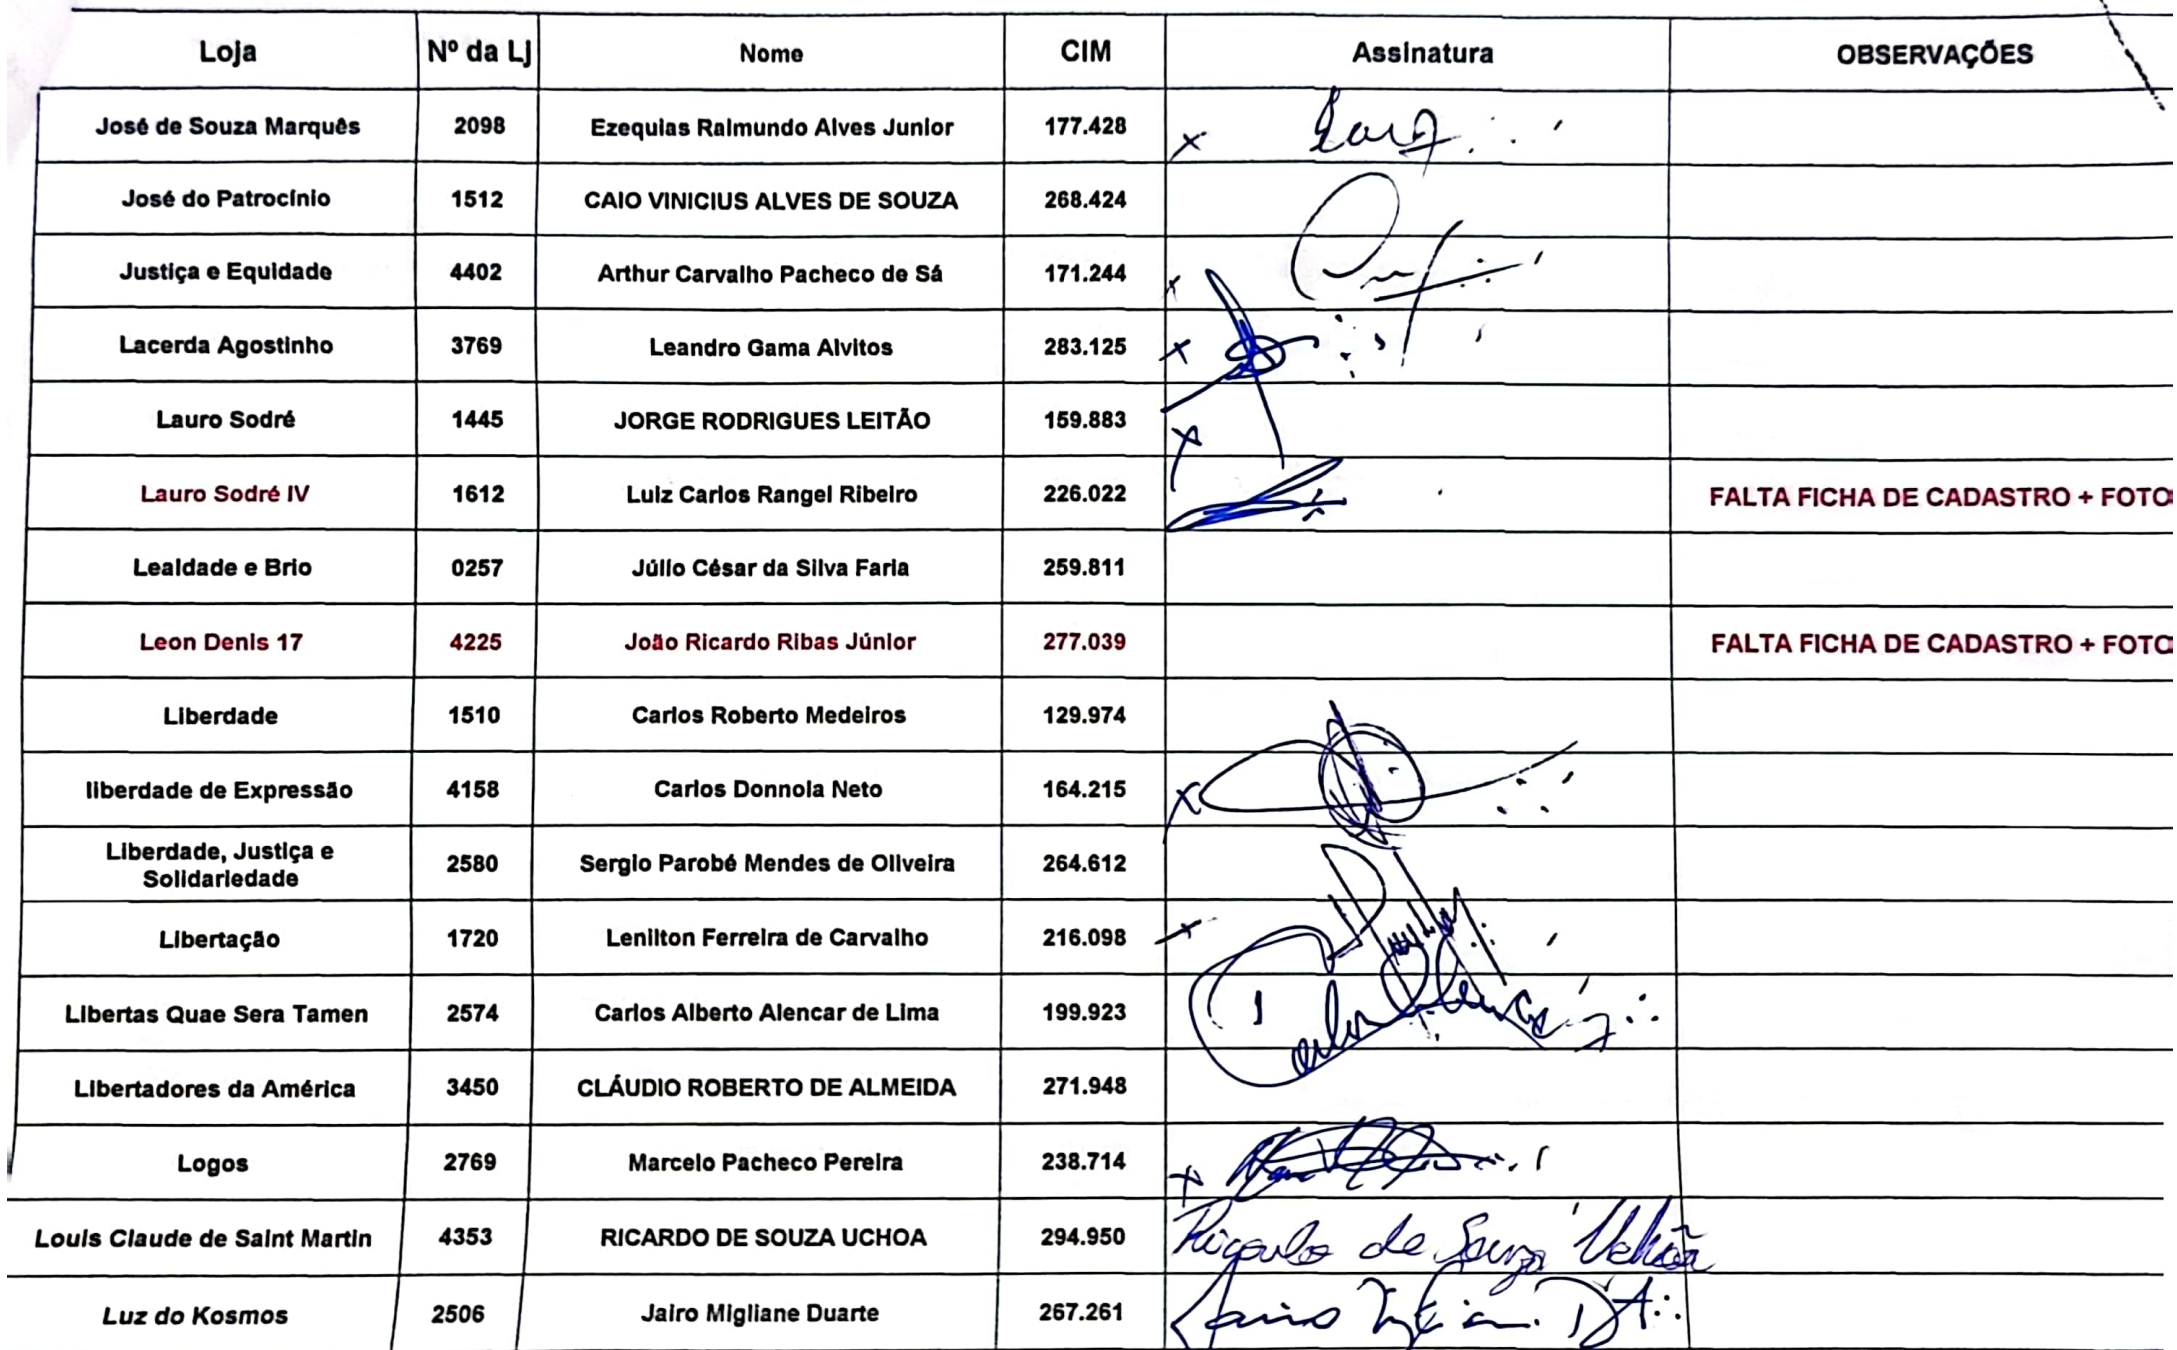 Loja Nº da Lj Nome CIM Assinatura OBSERVAÇÕES
José de Souza Marquês 2098 Ezequias Raimundo Alves Junior 177.428 x
José do Patrocínio 1512 CAIO VINICIUS ALVES DE SOUZA 268.424
Justiça e Equidade 4402 Arthur Carvalho Pacheco de Sá 171.244 x
Lacerda Agostinho 3769 Leandro Gama Alvitos 283.125 x
Lauro Sodré 1445 JORGE RODRIGUES LEITÃO 159.883 x
Lauro Sodré IV 1612 Luiz Carlos Rangel Ribeiro 226.022 FALTA FICHA DE CADASTRO + FOTO
Lealdade e Brio 0257 Júlio César da Silva Faria 259.811
Leon Denis 17 4225 João Ricardo Ribas Júnior 277.039 FALTA FICHA DE CADASTRO + FOTO
Liberdade 1510 Carlos Roberto Medeiros 129.974
liberdade de Expressão 4158 Carlos Donnola Neto 164.215 x
Liberdade, Justiça e
Solidariedade 2580 Sergio Parobé Mendes de Oliveira 264.612
Libertação 1720 Lenilton Ferreira de Carvalho 216.098 x
Libertas Quae Sera Tamen 2574 Carlos Alberto Alencar de Lima 199.923
Libertadores da América 3450 CLÁUDIO ROBERTO DE ALMEIDA 271.948
Logos 2769 Marcelo Pacheco Pereira 238.714 x
Louis Claude de Saint Martin 4353 RICARDO DE SOUZA UCHOA 294.950 Ricardo de Souza Uchôa
Luz do Kosmos 2506 Jairo Migliane Duarte 267.261 Jairo